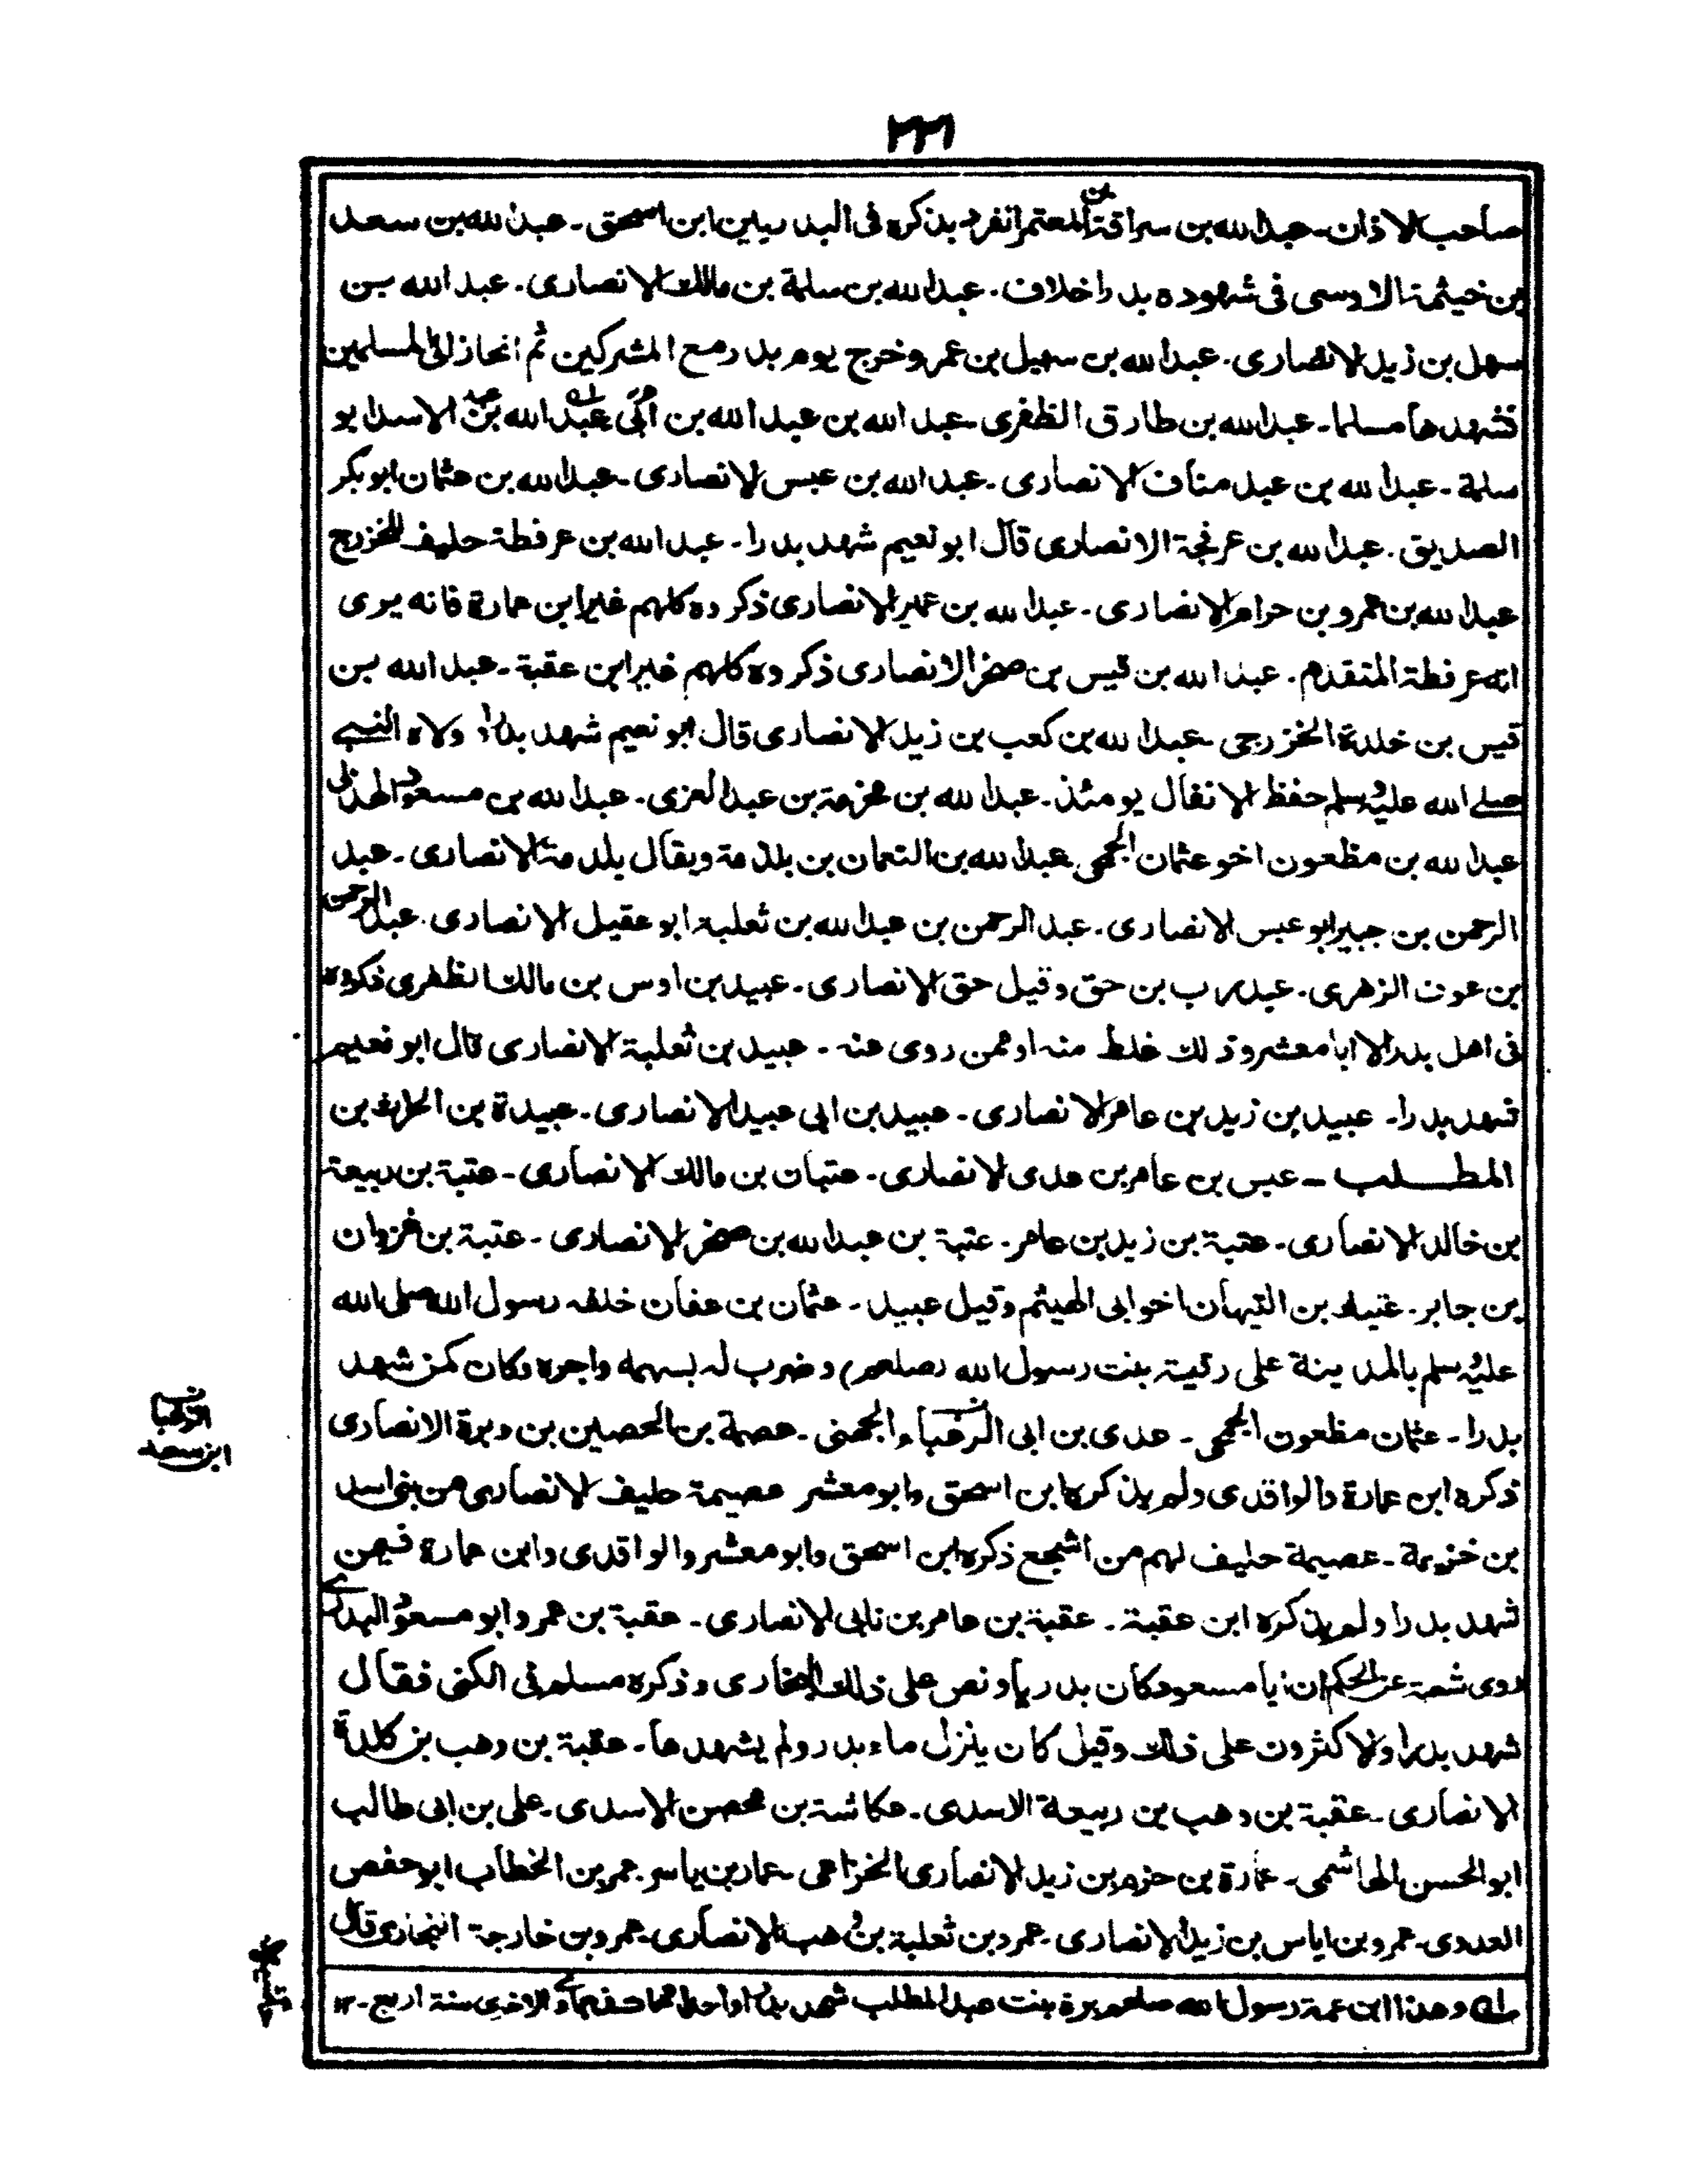 صاحب الاذان۔ عبد الله بن سراقة بن المعتمر انفرد بذكره فى البدريين ابن اسحق۔ عبد الله بن سعد
بن خيثمة الاوسى فى شهوده بدرا خلاف۔ عبد الله بن سلمة بن مالك الانصارى۔ عبد الله بن
سهل بن زيد الانصارى۔ عبد الله بن سهيل بن عمر وخرج يوم بدر مع المشركين ثم انحاز الى المسلمين
فشهدها مسلما۔ عبد الله بن طارق الظفرى۔ عبد الله بن عبد الله بن ابى عبد الله بن عبد الاسد ابو
سلمة۔ عبد الله بن عبد مناف الانصارى۔ عبد الله بن عبس الانصارى۔ عبد الله بن عثمان ابو بكر
الصديق۔ عبد الله بن عرفجة الانصارى قال ابو نعيم شهد بدرا۔ عبد الله بن عرفطة حليف للخزرج
عبد الله بن عمرو بن حرام الانصارى۔ عبد الله بن عمير الانصارى ذكروه كلهم غير ابن عمارة فانه يرى
انه عرفطة المتقدم۔ عبد الله بن قيس بن صخر الانصارى ذكروه كلهم غير ابن عقبة۔ عبد الله بن
قيس بن خلدة الخزرجى۔ عبد الله بن كعب بن زيد الانصارى قال ابو نعيم شهد بدرا وولاه النبى
صلے الله عليه وسلم حفظ الانفال يومئذ۔ عبد الله بن مخرمة بن عبد العزى۔ عبد الله بن مسعود الهذلى
عبد الله بن مظعون اخو عثمان الجمحى۔ عبد الله بن النعمان بن بلذمة ويقال بلدمة الانصارى۔ عبد
الرحمن بن جبير ابو عبس الانصارى۔ عبد الرحمن بن عبد الله بن ثعلبة ابو عقيل الانصارى۔ عبد الرحمن
بن عوف الزهرى۔ عبد رب بن حق وقيل حق الانصارى۔ عبيد بن اوس بن مالك الظفرى ذكروه
فى اهل بدر الا ابا معشر وذلك غلط منه او ممن روى عنه۔ عبيد بن ثعلبة الانصارى قال ابو نعيم
شهد بدرا۔ عبيد بن زيد بن عامر الانصارى۔ عبيد بن ابى عبيد الانصارى۔ عبيدة بن الحارث بن
المطلب۔ عبس بن عامر بن عدى الانصارى۔ عتبان بن مالك الانصارى۔ عتبة بن ربيعة
بن خالد الانصارى۔ عتبة بن زيد بن عامر۔ عتبة بن عبد الله بن صخر الانصارى۔ عتبة بن غزوان
بن جابر۔ عتيك بن التيهان اخو ابى الهيثم وقيل عبيد۔ عثمان بن عفان خلفه رسول الله صلى الله
عليه وسلم بالمدينة على رقية بنت رسول الله (صلعم) وضرب له بسهمه واجره وكان كمن شهد
بدرا۔ عثمان مظعون الجمحى۔ عدى بن ابى الزغباء الجهنى۔ عصمة بن الحصين بن وبرة الانصارى
الزغباء
ابن سعد
ذكره ابن عمارة والواقدى ولم يذكره ابن اسحق وابو معشر عصيمة حليف الانصارى من بنى اسد
بن خزيمة۔ عصيمة حليف لهم من اشجع ذكره ابن اسحق وابو معشر والواقدى وابن عمارة فيمن
شهد بدرا ولم يذكره ابن عقبة۔ عقبة بن عامر بن نابى الانصارى۔ عقبة بن عمرو ابو مسعود البدرى
روى شعبة عن الحكم ان ابا مسعود كان بدريا ونص على ذلك البخارى وذكره مسلم فى الكنى فقال
شهد بدرا والاكثرون على ذلك وقيل كان ينزل ماء بدر ولم يشهدها۔ عقبة بن وهب بن كلدة
الانصارى۔ عقبة بن وهب بن ربيعة الاسدى۔ عكاشة بن محصن الاسدى۔ على بن ابى طالب
ابو الحسن الهاشمى۔ عمارة بن حزم بن زيد الانصارى الخزاعى۔ عمار بن ياسر۔ عمر بن الخطاب ابو حفص
العدوى۔ عمرو بن اياس بن زيد الانصارى۔ عمرو بن ثعلبة بن وهب الانصارى۔ عمرو بن خارجة النجارى قال
له وهذا ابن عمة رسول الله صلعم برة بنت عبد المطلب شهد بدرا واحدا مات فى جمادى الاخرى سنة اربع۔ ۱۲